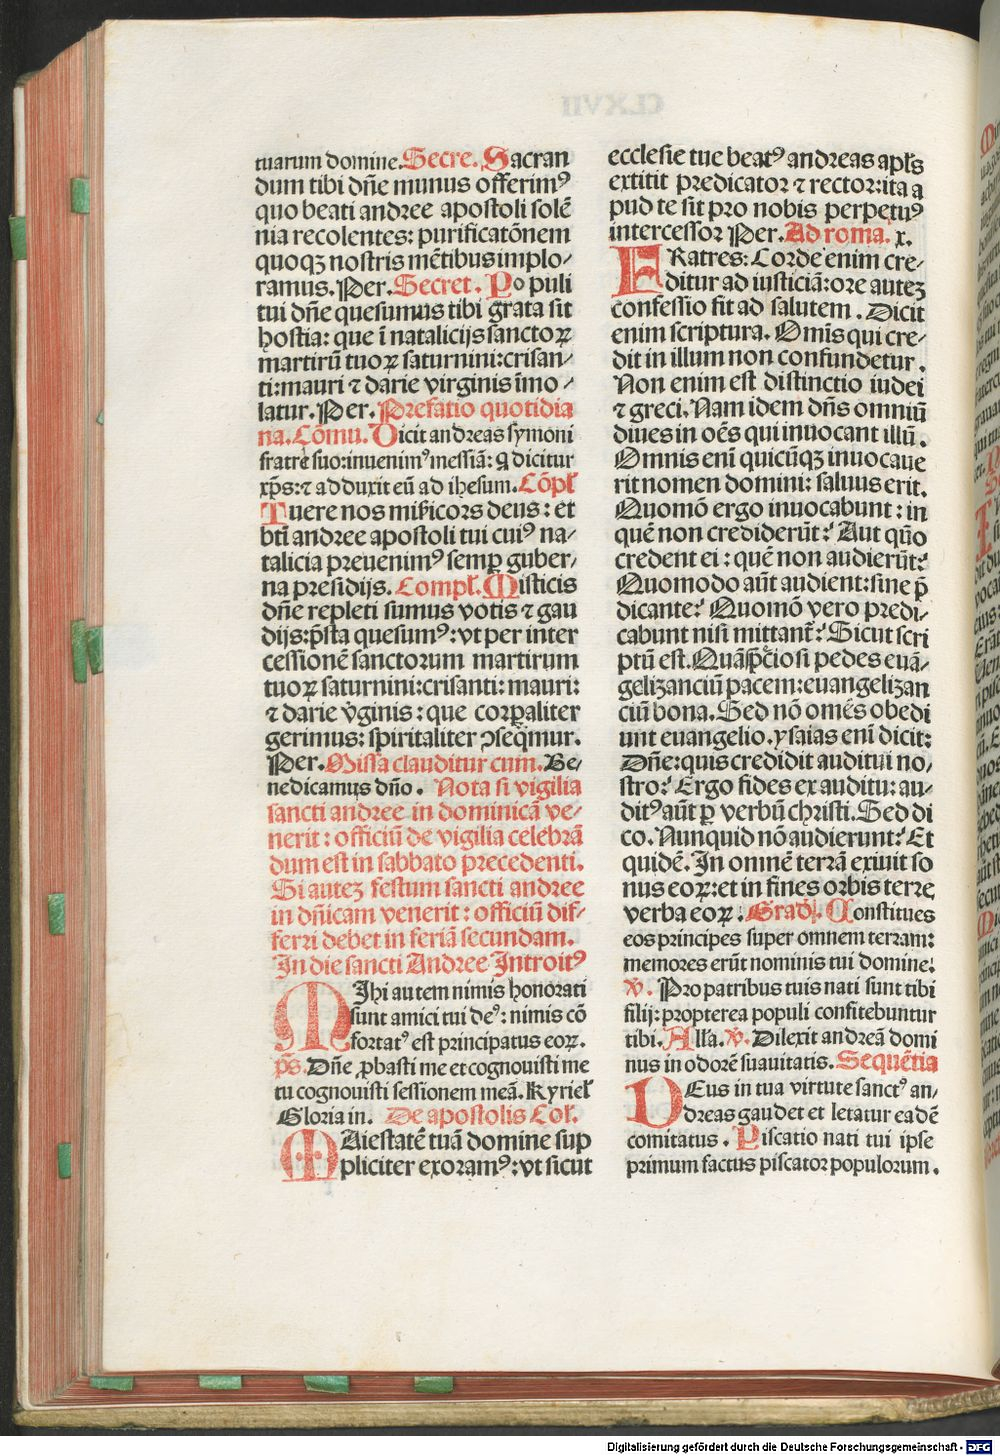 tuarum domine. Secre. Sacran
dum tibi dñe munus offerimꝰ
quo beati andree apostoli solē
nia recolentes: purificatōnem
quoqꝫ nostris mētibus implo⸗
ramus. Per. Secret. Po puli
tui dñe quesumus tibi grata sit
hostia: que ī natalicijs sanctoꝝ
martirū tuoꝝ saturnini: crisan⸗
ti: mauri ⁊ darie virginis īmo⸗
latur. Per. Prefatio quotidia
na. Cōmu. Dicit andreas symoni
fratrē suo: inuenimꝰ messiā: q̄ dicitur
xp̄s: ⁊ adduxit eū ad ihesum. Cōpl̄
Tuere nos mīsicors deus: et
bt̄i andree apostoli tui cuiꝰ na⸗
talicia preuenimꝰ semꝑ guber⸗
na presidijs. Compl̄. Misticis
dñe repleti sumus votis ⁊ gau
dijs: p̄sta quesumꝰ: vt per inter
cessionē sanctorum martirum
tuoꝝ saturnini: crisanti: mauri:
⁊ darie v̄ginis: que corꝑaliter
gerimus: spiritaliter ↄseq̄mur.
Per. Missa clauditur cum. Be⸗
nedicamus dño. Nota si vigilia
sancti andree in dominicā ve⸗
nerit: officiū de vigilia celebrā
dum est in sabbato precedenti.
Si autez festum sancti andree
in dñicam venerit: officiū dif⸗
ferri debet in feriā secundam.
In die sancti Andree Introitꝰ
MIhi autem nimis honorati
sunt amici tui deꝰ: nimis cō
fortatꝰ est principatus eoꝝ.
ps̄. Dñe ꝓbasti me et cognouisti me
tu cognouisti sessionem meā. Kyriel̄
Gloria in. De apostolis Col̄.
MAiestatē tuā domine sup
pliciter exoramꝰ: vt sicut
ecclesie tue beatꝰ andreas apl̄s
extitit predicator ⁊ rector: ita a
pud te sit pro nobis perpetuꝰ
intercessor Per. Ad roma. x.
FRatres: Corde enim cre⸗
ditur ad iusticiā: ore autez
confessio fit ad salutem. Dicit
enim scriptura. Omīs qui cre⸗
dit in illum non confundetur.
Non enim est distinctio iudei
⁊ greci. Nam idem dñs omniū
diues in oēs qui inuocant illū.
Omnis enī quicūqꝫ inuocaue
rit nomen domini: saluus erit.
Quomō ergo inuocabunt: in
quē non crediderūt? Aut quō
credent ei: quē non audierūt?
Quomodo aūt audient: sine p̄
dicante? Quomō vero predi⸗
cabunt nisi mittant̄? Sicut scri
ptū est. Quā sp̄ciosi pedes euā⸗
gelizanciū pacem: euangelizan
ciū bona. Sed nō omēs obedi
unt euangelio. ysaias enī dicit:
Dñe: quis credidit auditui no⸗
stro? Ergo fides ex auditu: au⸗
ditꝰ aūt ꝑ verbū christi. Sed di
co. Nunquid nō audierunt? Et
quidē. In omnē terrā exiuit so
nus eoꝝ: et in fines orbis terre
verba eoꝝ. Grad̄. Constitues
eos principes super omnem terram:
memores erūt nominis tui domine.
v̄. Pro patribus tuis nati sunt tibi
filij: propterea populi confitebuntur
tibi. All̄a. v̄. Dilexit andreā domi
nus in odorē suauitatis. Sequētia
DEus in tua virtute sanctꝰ an⸗
dreas gaudet et letatur eadē
comitatus. Piscatio nati tui ipse
primum factus piscator populorum.
Digitalisierung gefördert durch die Deutsche Forschungsgemeinschaft - DFG